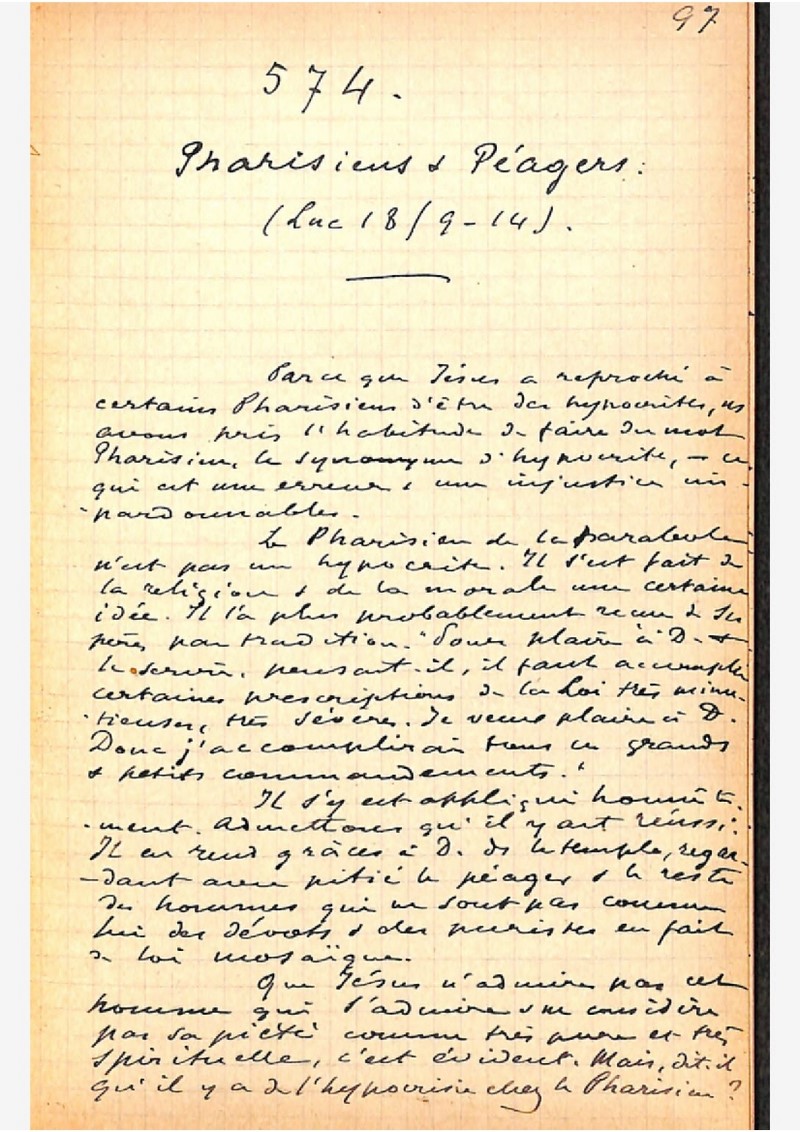 97
574.
Pharisiens & Péagers.
(Luc 18/9-14).
Parce que Jésus a reproché à
certains Pharisiens d'être des hypocrites, ns
avons pris l'habitude de faire du mot
Pharisien, le synonyme d'hypocrite, - ce
qui est une erreur & une injustice im-
-pardonnables.
Le Pharisien de la parabole
n'est pas un hypocrite. Il s'est fait de
la religion & de la morale une certaine
idée. Il l'a plus probablement reçue de ses
pères par tradition. "Pour plaire à D. &
le servir, pensait-il, il faut accomplir
certaines prescriptions de la Loi très minu-
-tieuses, très sévères. Je veux plaire à D.
Donc j'accomplirai tous ces grands
& petits commandements."
Il s'y est appliqué honnête-
-ment. Admettons qu'il y ait réussi.
Il en rend grâces à D. ds le temple, regar-
-dant avec pitié le péager & le reste
des hommes qui ne sont pas comme
lui des dévots & des puristes en fait
de loi mosaïque.
Que Jésus n'admire pas cet
homme qui s'admire & ne considère
pas sa piété comme très pure et très
spirituelle, c'est évident. Mais, dit-il
qu'il y a de l'hypocrisie chez le Pharisien ?